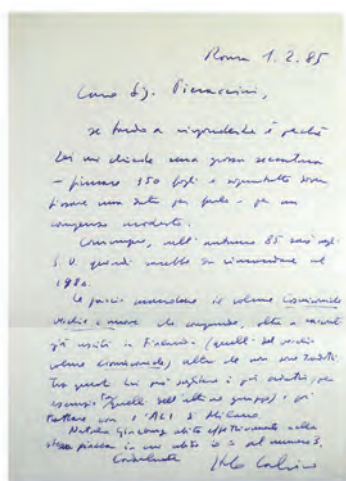 Roma 1.2.85
Caro Sig. Pieraccini,
se tardo a risponderle è perché
Lei mi chiede una grossa seccatura
– firmare 150 fogli e soprattutto dover
fissare una data per farlo – per un
compenso modesto.
Comunque, nell'autunno 85 sarò negli
S.U. quindi sarebbe da rimandare al
1986.
Le faccio mandare il volume Cosmicomiche
vecchie e nuove che comprende, oltre a racconti
già usciti in (quelli del vecchio
volume Cosmicomiche) altri che non sono
Tra questi Lei può scegliere i più adatti (per
esempio quelli dell'ultimo gruppo) e poi
trattare con l'ALI di Milano.
Natalia Ginzburg abita effettivamente nella
stessa piazza in cui abito io al numero 3.
Cordialmente Italo Calvino